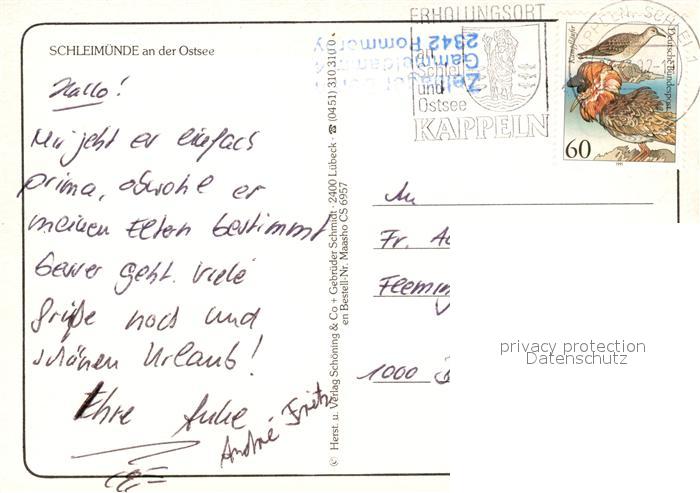 SCHLEIMÜNDE an der Ostsee
Hallo!
Mir geht es einfach
prima, obwohl es
meinen Eltern bestimmt
besser geht. Viele
Grüße noch und
schönen Urlaub!
Ihre Anke
André Fritz
© Herst. u. Verlag Schöning & Co + Gebrüder Schmidt · 2400 Lübeck · ☎ (0451) 31 03 10
en Bestell-Nr. Maasho CS 6957
ERHOLUNGSORT
an
Schlei
und
Ostsee
KAPPELN
2342
Kampfläufer
Deutsche Bundespost
60
1991
An
Fr.
Flemin
1000
privacy protection
Datenschutz